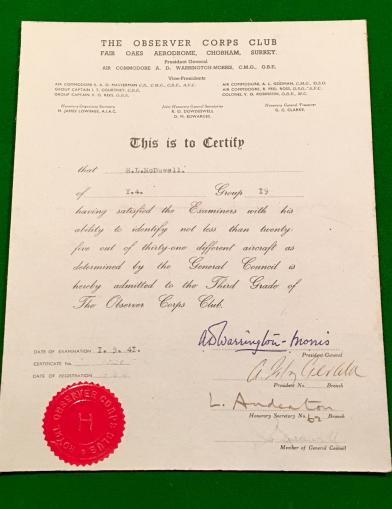 THE OBSERVER CORPS CLUB
FAIR OAKS AERODROME, CHOBHAM, SURREY.
President General
AIR COMMODORE A. D. WARRINGTON-MORRIS, C.M.G., O.B.E.
Vice-Presidents
GROUP CAPTAIN I. T. COURTNEY, C.B.E.
COLONEL V. D. ROBINSON, O.B.E., M.C.
Honorary Organising Secretary
H. JAMES LOWINGS, A.I.A.C.
Joint Honorary General Secretaries
R. D. DOWDESWELL
D. N. EDWARDES.
Honorary General Treasurer
G. C. CLARKE.
This is to Certify
that H.L.McDowell.
of Y.4. Group 19
having satisfied the Examiners with his
ability to identify not less than twenty-
five out of thirty-one different aircraft as
determined by the General Council is
hereby admitted to the Third Grade of
The Observer Corps Club.
DATE OF EXAMINATION I. 9. 4I.
CERTIFICATE No.
DATE OF REGISTRATION
A D Warrington-Morris
President-General
President No. Branch
L. Anderton
Honorary Secretary No. 62 Branch
Member of General Council
OBSERVER CORPS CLUB
H